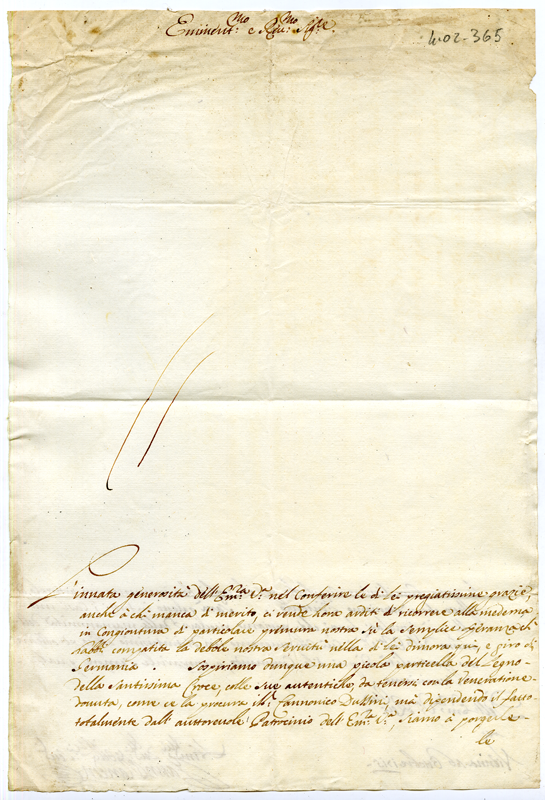 Eminent:mo e Rev:mo Sig:re
402-365
L'innata generosità dell'Em:za V:a nel Conferire le di lei pregiatissime grazie,
anche à chi manca di merito, ci rende hora arditi di ricorrere alla medema
in Congiontura di particolare premura nostra sù la semplice speranza ch'
habbi compatita la debole nostra servitù nella di lei dimora quì, e giro di
Germania. Sospiriamo dunque una picola particella del Legno
della Santissima Croce, colle sue autentiche, da tenersi con la Veneratione
dovuta, come ce la procura il Cannonico Duttini, mà dipendendo il fatto
totalmente dall'auttorevole Patrocinio dell'Em:za V:a, siamo à porgerle
le